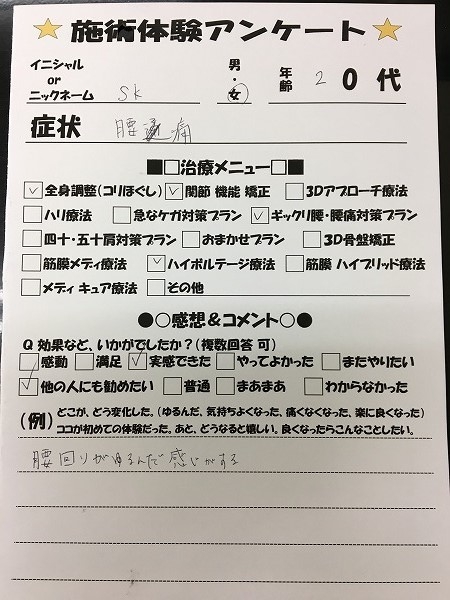 ★施術体験アンケート★
イニシャル or ニックネーム SK 男・女 年齢 20代
症状 腰痛
■□治療メニュー□■
☑全身調整(コリほぐし) ☑関節 機能 矯正 □3Dアプローチ療法
□ハリ療法 □急なケガ対策プラン ☑ギックリ腰・腰痛対策プラン
□四十・五十肩対策プラン □おまかせプラン □3D骨盤矯正
□筋膜メディ療法 ☑ハイボルテージ療法 □筋膜 ハイブリッド療法
□メディ キュア療法 □その他
●○感想&コメント○●
Q 効果など、いかがでしたか?(複数回答 可)
□感動 □満足 ☑実感できた □やってよかった □またやりたい
☑他の人にも勧めたい □普通 □まあまあ □わからなかった
(例) どこが、どう変化した。(ゆるんだ、気持ちよくなった、痛くなくなった、楽に良くなった)
ココが初めての体験だった。あと、どうなると嬉しい。良くなったらこんなことしたい。
腰回りがゆるんだ感じがする